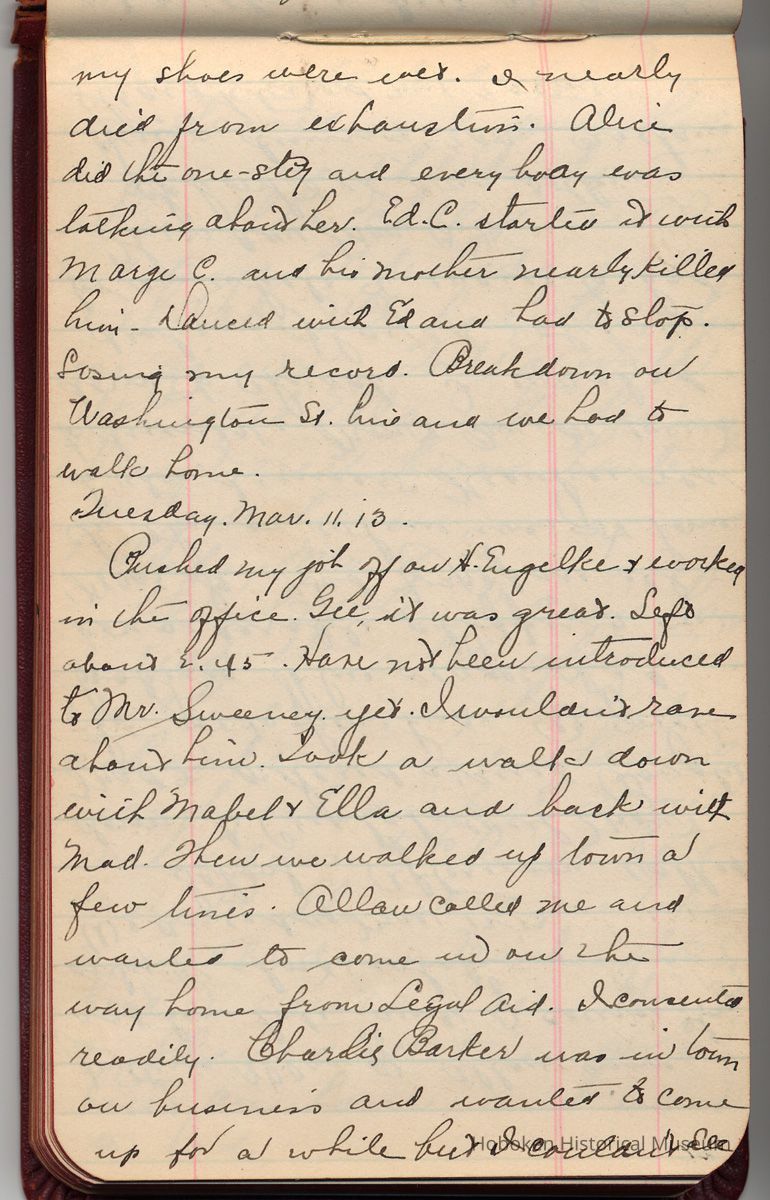 my shoes were wet. I nearly
died from exhaustion. Alice
did the one-step and every body was
talking about her. Ed. C. started it with
Marge C. and his mother nearly killed
him - Danced with Ed and had to stop.
Losing my record. Breakdown on
Washington St. line and we had to
walk home.
Tuesday. Mar. 11. 13.
Pushed my job off on H. Engelke & worked
in the office. Gee, it was great. Left
about 2.45. Have not been introduced
to Mr. Sweeney yet. I wouldn't rave
about him. Took a walk down
with Mabel & Ella and back with
Mad. Then we walked up town a
few times. Allan called me and
wanted to come in on the
way home from Legal Aid. I consented
readily. Charlie Barker was in town
on business and wanted to come
up for a while but I couldn't see
Hoboken Historical Museum